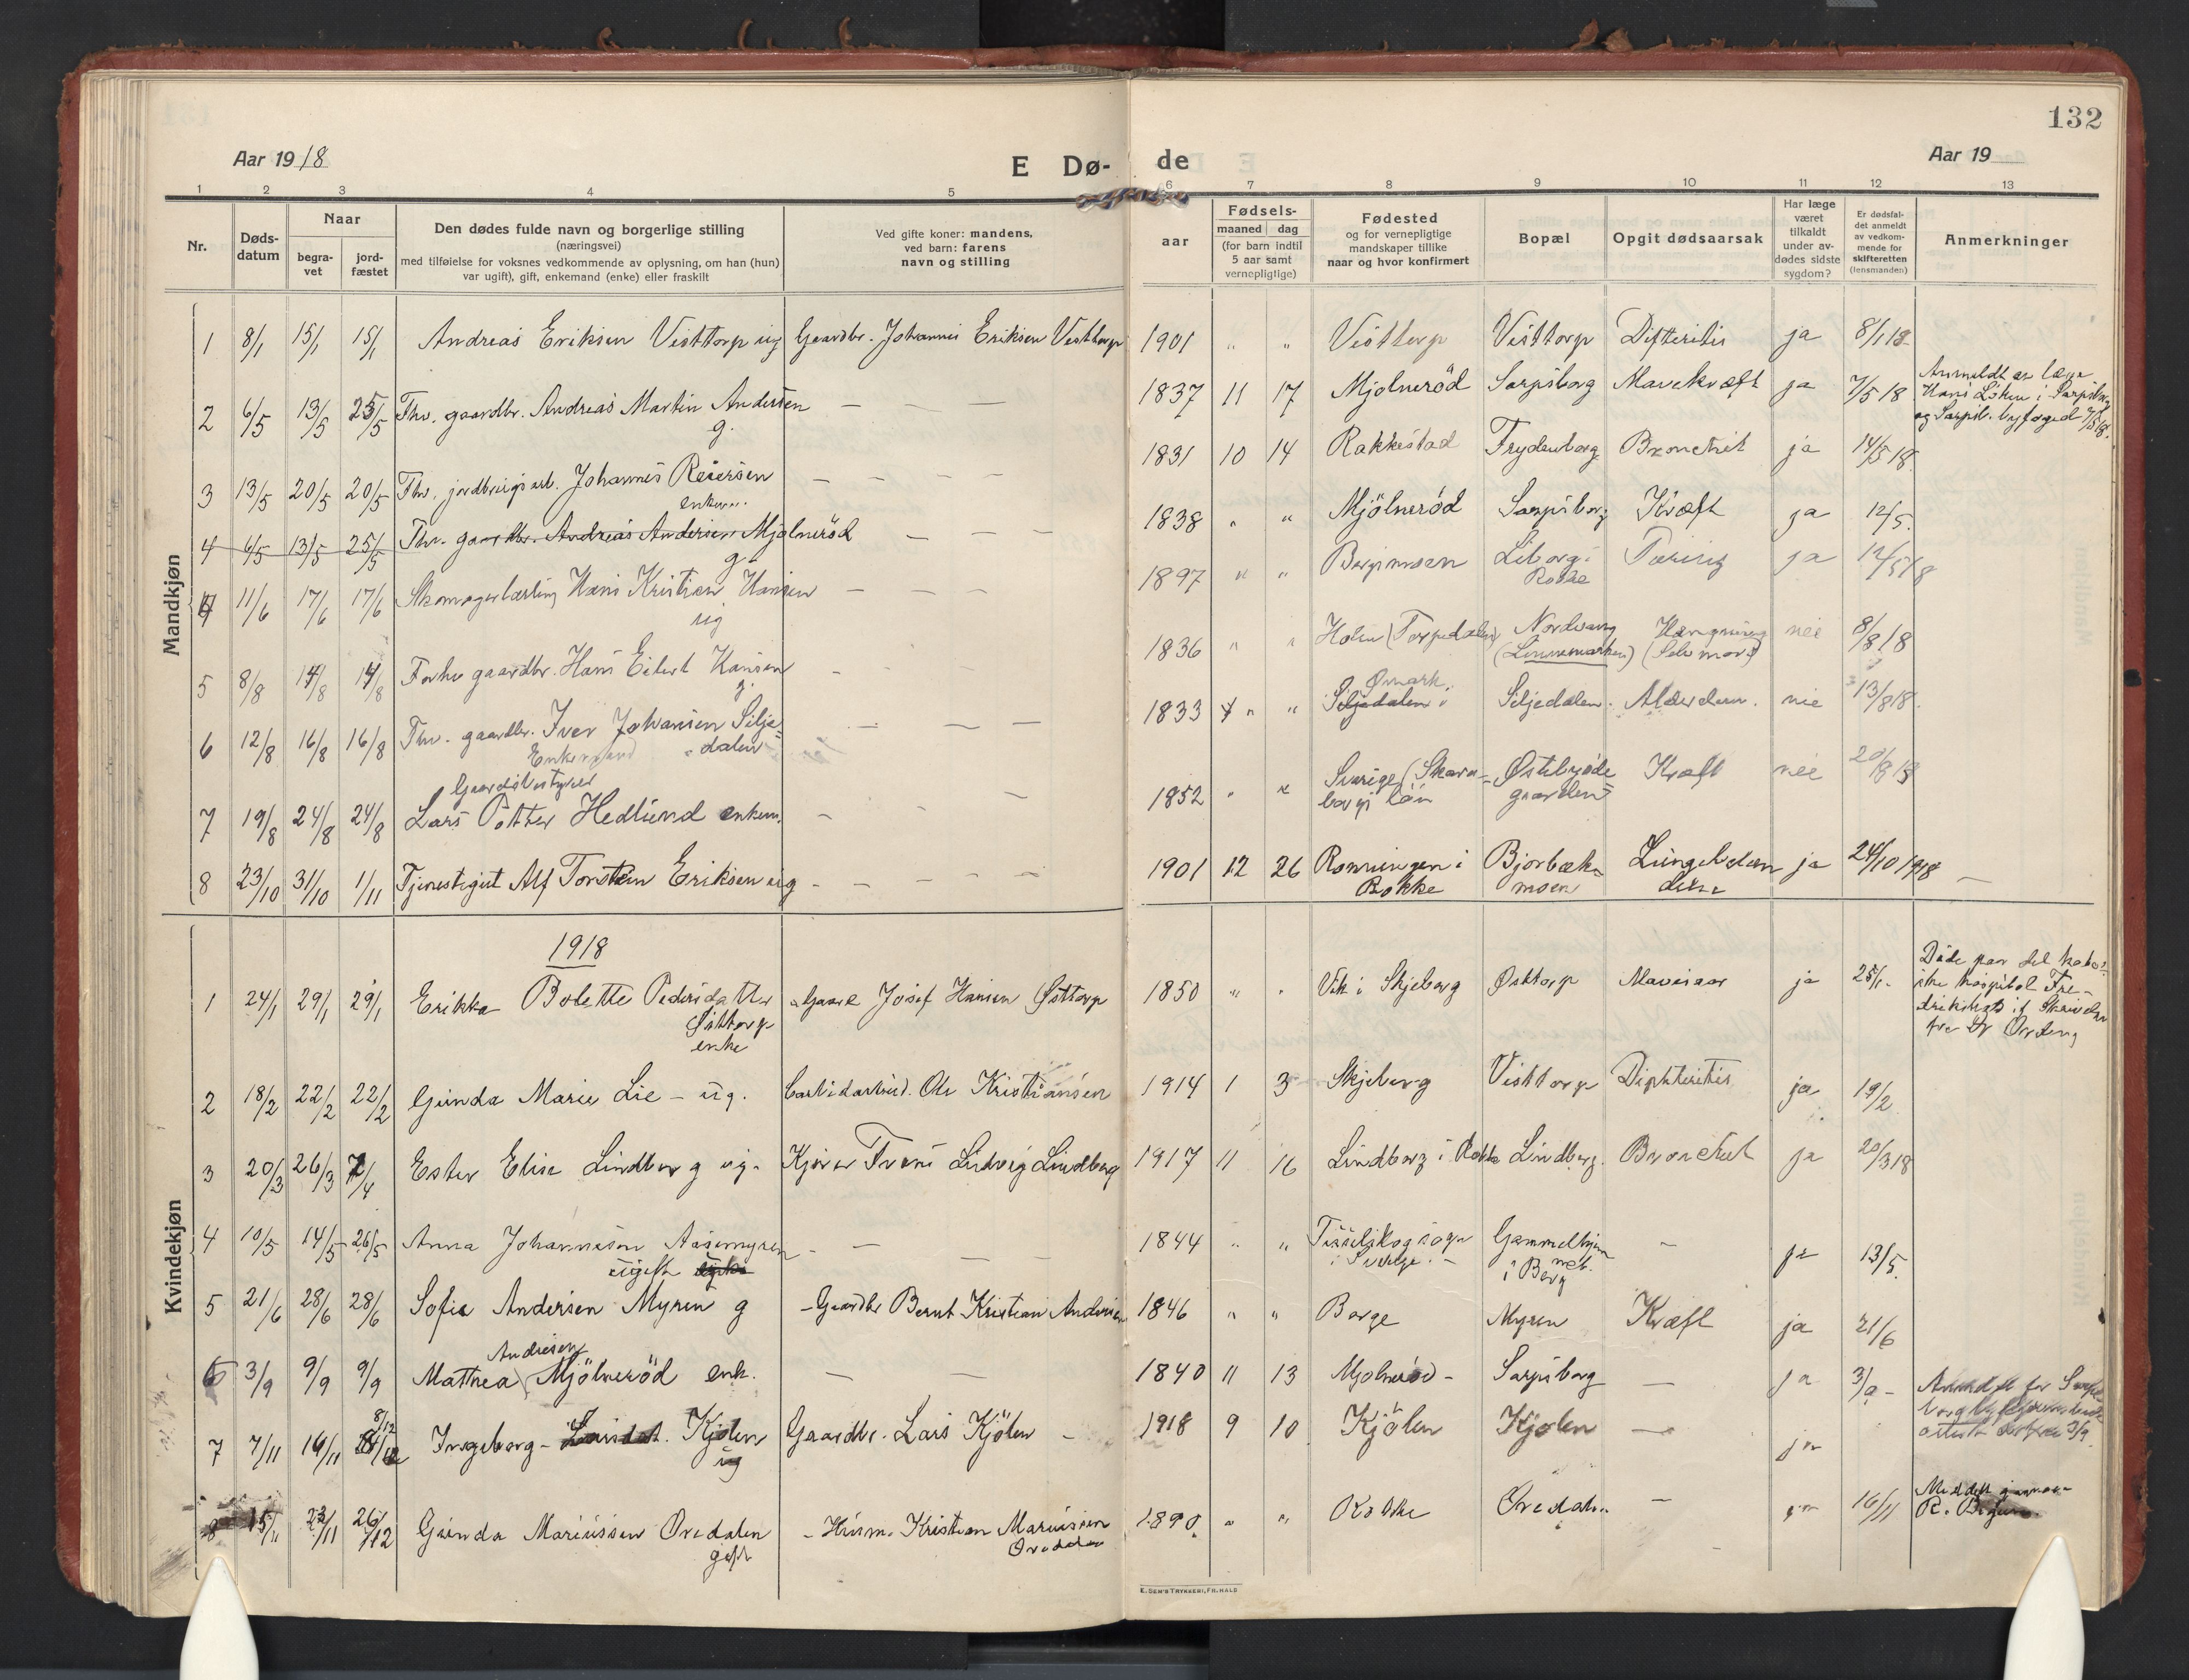 132
Aar 1918
E Dø-
de
Aar 19
1 2 3 4 5 6 7 8 9 10 11 12 13
Nr.
Døds-
datum
Naar
begra-
vet
jord-
fæstet
Den dødes fulde navn og borgerlige stilling
(næringsvei)
med tilføielse for voksnes vedkommende av oplysning, om han (hun)
var ugift), gift, enkemand (enke) eller fraskilt
Ved gifte koner: mandens,
ved barn: farens
navn og stilling
Fødsels-
aar
maaned dag
(for barn indtil
5 aar samt
vernepligtige)
Fødested
og for vernepligtige
mandskaper tillike
naar og hvor konfirmert
Bopæl
Opgit dødsaarsak
Har læge
været
tilkaldt
under av-
dødes sidste
sygdom?
Er dødsfal-
det anmeldt
av vedkom-
mende for
skifteretten
(lensmanden)
Anmerkninger
Mandkjøn
1 8/1 15/1 15/1 Andreas Eriksen Visttorp ug Gaardbr. Johannes Eriksen Visttorp 1901 " " Visttorp Visttorp Difteritis ja 8/1 18
2 6/5 13/5 25/5 Fhv. gaardbr. Andreas Martin Andersen g. — — — 1837 11 17 Mjølnerød Sarpsborg Mavekræft ja 7/5 18
Anmeldt av læge
Hans Löken i Sarpsborg
og Sarpsb. byfoged 7/5 18.
3 13/5 20/5 20/5 Fhv. jordbrugsarb. Johannes Reiersen enkem. — — — 1831 10 14 Rakkestad Frydenborg Bronchit ja 14/5 18
4 6/5 13/5 25/5 Fhv. gaardbr. Andreas Andersen Mjølnerød g. — — — 1838 " " Mjölneröd Sarpsborg Kræft ja 12/5.
4 11/6 17/6 17/6 Skomagerlærling Hans Kristian Hansen ug — — — 1897 " " Bergsmoen Liborg i Rokke Tæring ja
5 8/8 14/8 14/8 Forhv gaardbr. Hans Eilert Hansen g. — 1836 " " Holm (Torpedalen) Nordvang Hængning (Selvmord) nei 8/8 18
6 12/8 16/8 16/8 Fhv. gaardbr. Iver Johansen Silje-
dalen
Enkemand — — — 1833 " " Ømark. Siljedalen Siljedalen. Alderdom. nei 13/8 18.
Gaardsbestyrer
7 19/8 24/8 24/8 Lars Potter Hedlund enkem. — 1852 " " Sverige (Skara-
borgs län Østebyøde
gaarden Kræft nei 20/8 18
8 23/10 31/10 1/11 Tjenestegut Alf Torstein Eriksen ug — — — — 1901 12 26 Rønningen i
Rokke Bjørbæk-
moen ja 24/10 1918 —
Kvindekjøn
1918
1 24/1 29/1 29/1 Erikka Bolette Pedersdatter
Østtorp
enke Josef Hansen Østtorp 1850 " " Vik i Skjeberg Østtorp Mavesaar ja 25/1.
Døde paa det kato-
lske hospital Fre-
drikshald
2 18/2 22/2 22/2 Gunda Marie Lie – ug. Carbidarbeid. Ole Kristiansen 1914 1 3 Skjeberg Visttorp Diphteritis ja 19/2
3 20/3 26/3 Ester Elise Lindberg ug. Kjører Frans Ludvig Lindberg 1917 11 16 Lindberg i Rokke Lindberg. Bronchit ja 20/3 18
4 10/5 14/5 26/5 Anna Johannesen Aasemyren
ugift — — 1844 " " Tisselskog sogn
i Sverige. Gammelhjem-
met.
i Berg — ja 13/5.
5 21/6 28/6 28/6 Sofie Andersen Myren g – Gaardbr Bernt Kristian Andersen 1846 " " Borge Myren Kræft ja 21/6
Andresen
6 3/9 9/9 9/9 Mathea Mjölneröd enk. — — 1840 11 13 Mjølnerød – Sarpsborg — ja 3/9 –
7 7/11 16/11 8/12 Ingeborg – Larsdat. Kjølen
ug Gaardbr. Lars Kjölen – 1918 9 10 Kjölen Kjølen — ja
8 15/11 23/11 26/12 Gunda Mariussen Ovedalen
gift – Husm. Kristian Mariussen
Ovedalen 1890 " " Rokke Ovedalen — ja 16/11
E. SEM'S TRYKKERI, FR.HALD